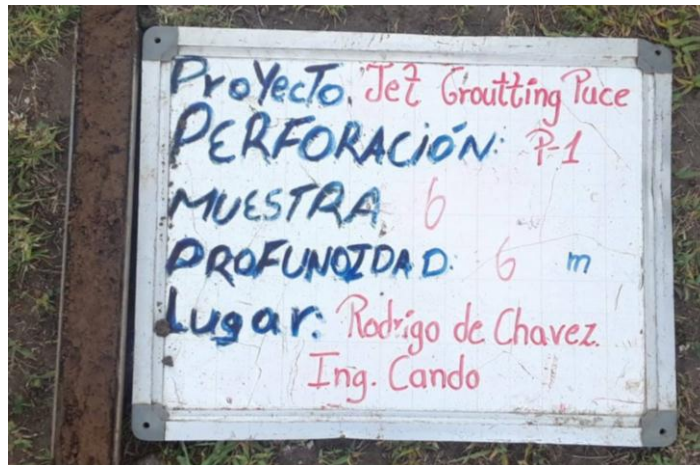 Proyecto. Jet Groutting Puce
PERFORACIÓN: P-1
MUESTRA 6
PROFUNDIDAD: 6 m
Lugar: Rodrigo de Chavez.
Ing. Cando